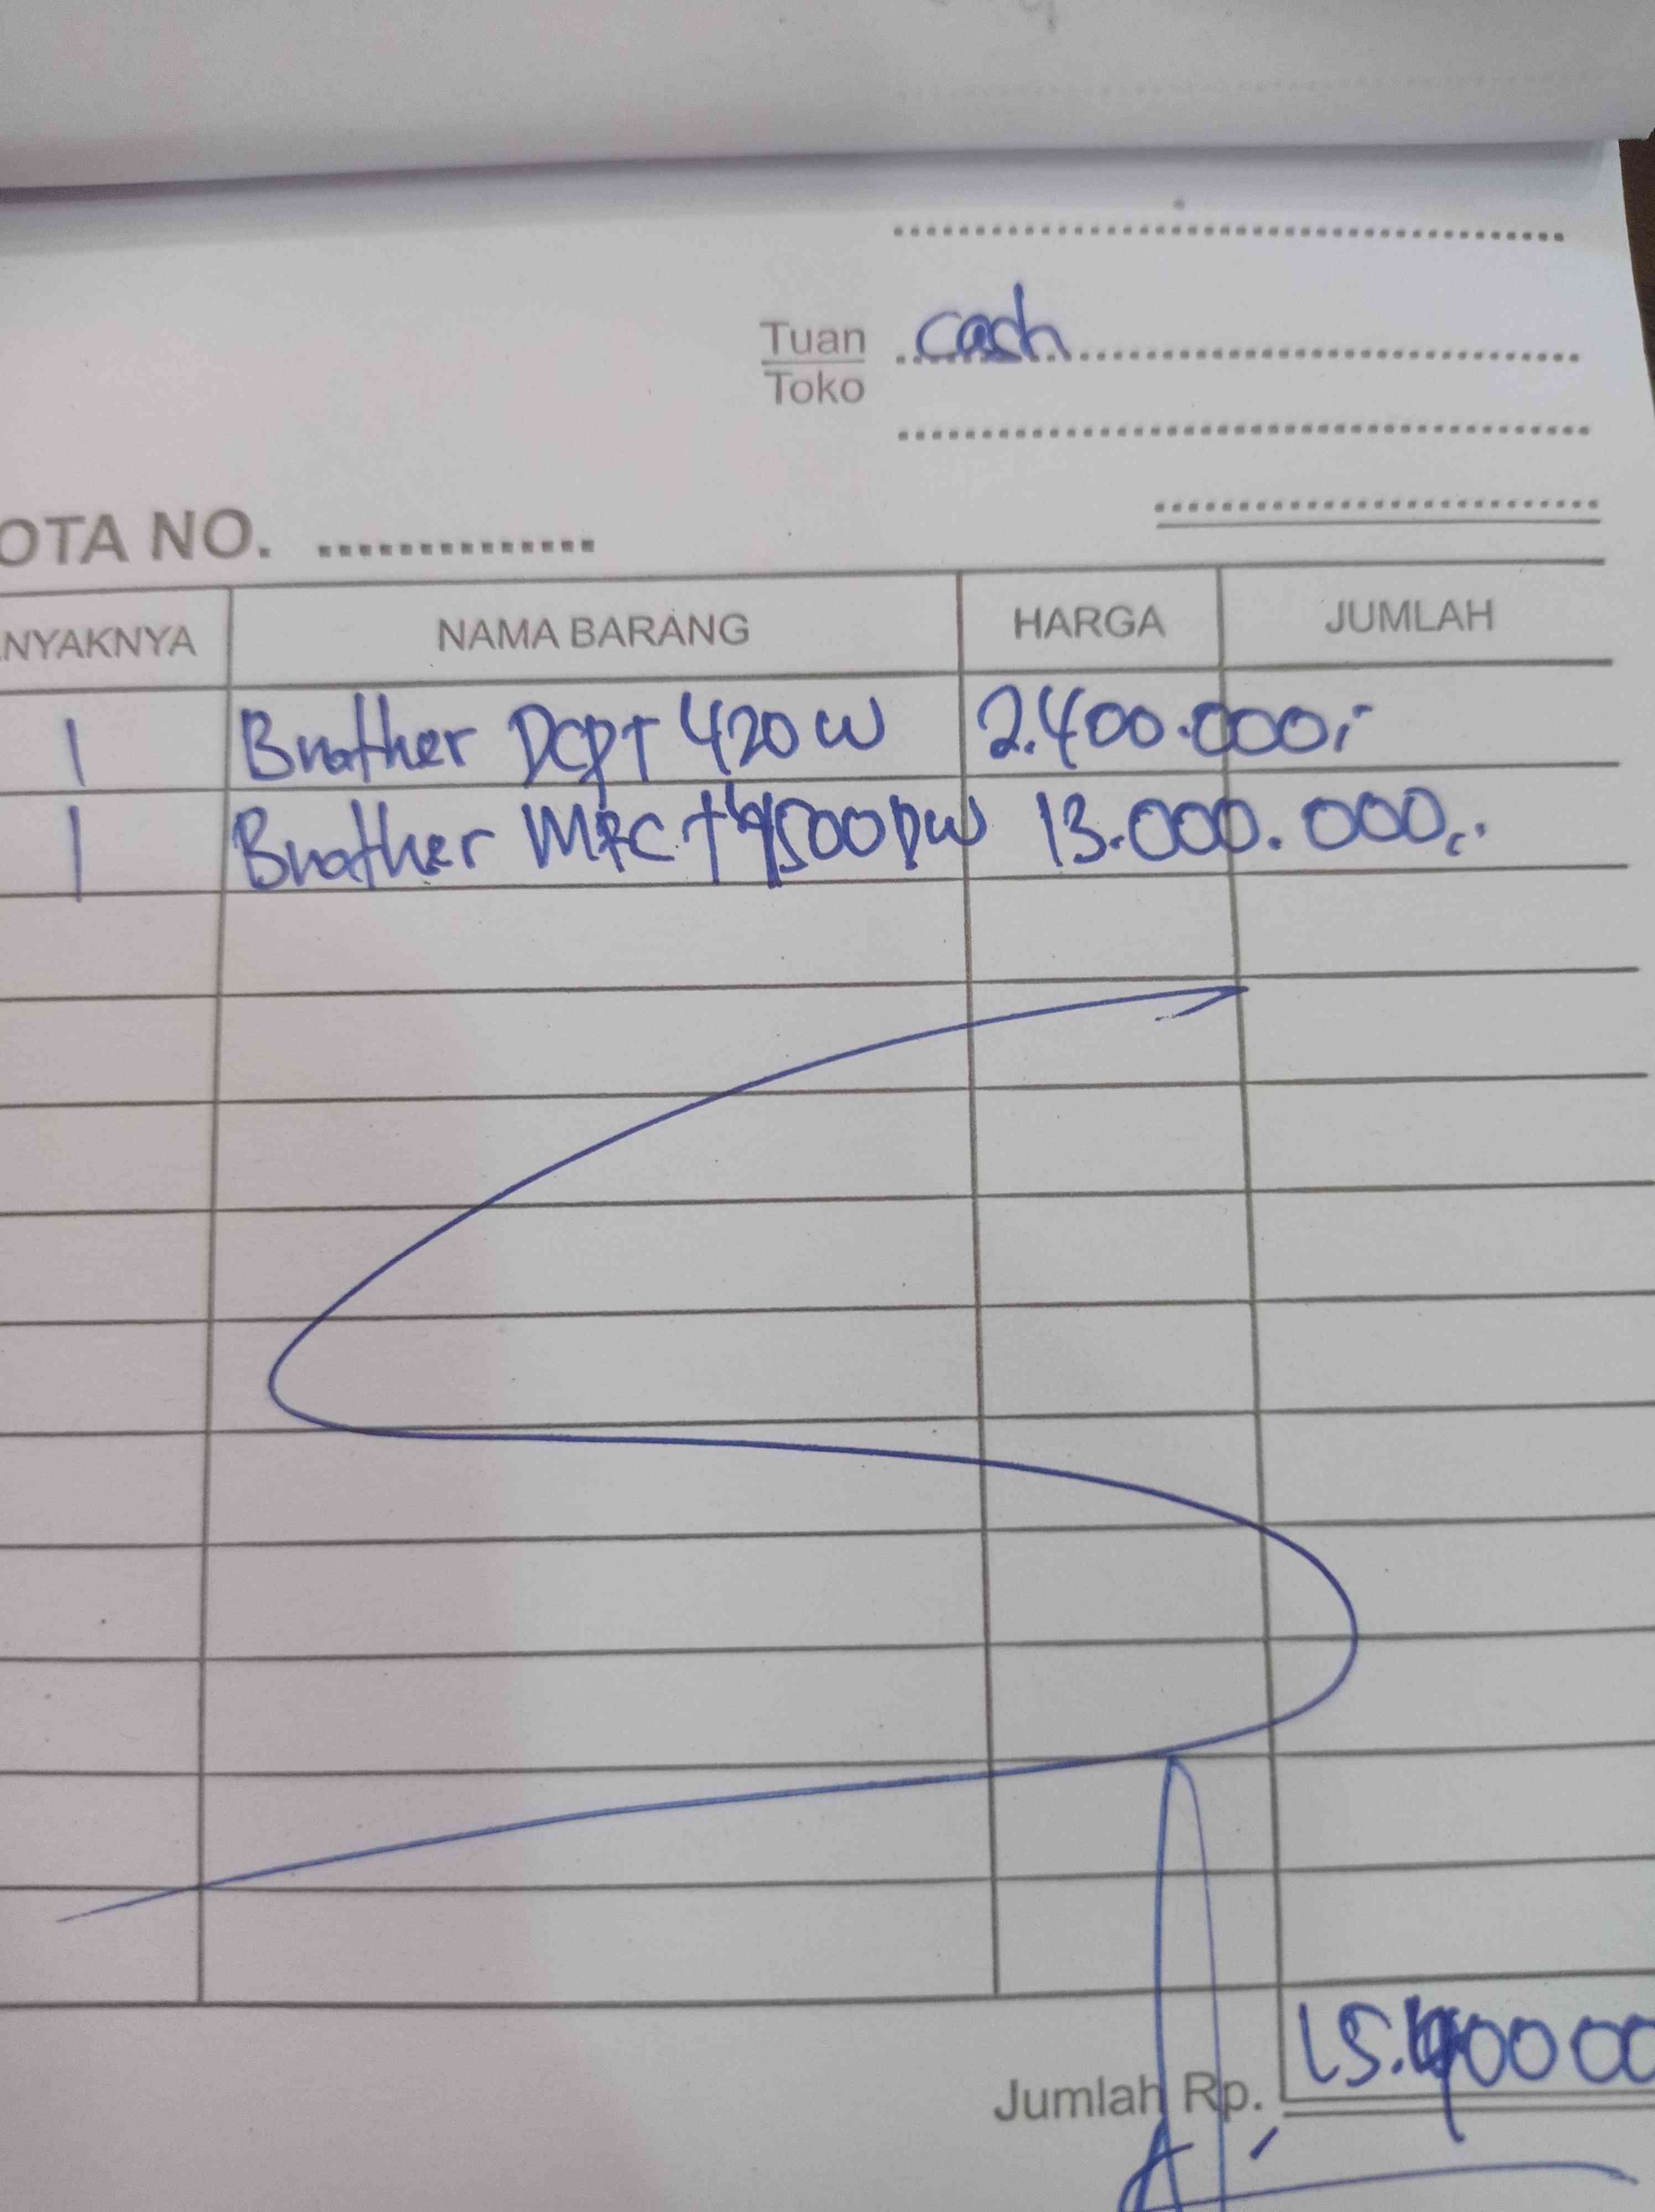 Tuan cash
Toko
OTA NO.
NYAKNYA NAMA BARANG HARGA JUMLAH
1 Brother DCPT 420 W 2.400.000,-
1 Brother MFC T4500DW 13.000.000,-
Jumlah Rp. 15.40000